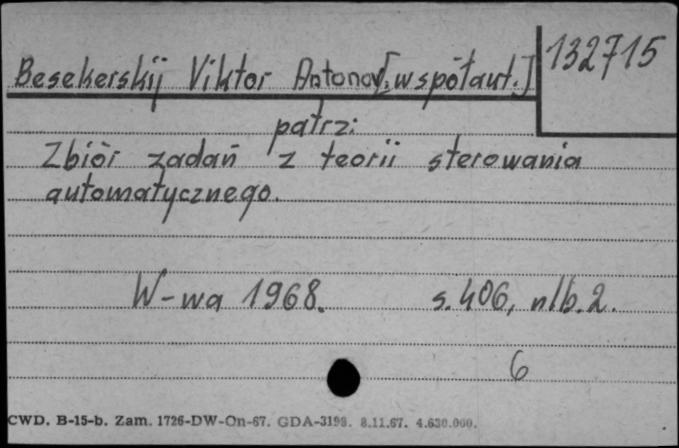 132715
Besekerskij Viktor Antonov. [współaut.]
patrz:
Zbiór zadań z teorii sterowania
automatycznego.
W-wa 1968. s. 406, nlb. 2.
6
CWD. B-15-b. Zam. 1726-DW-On-67. GDA-3198. 8.11.67. 4.630.000.